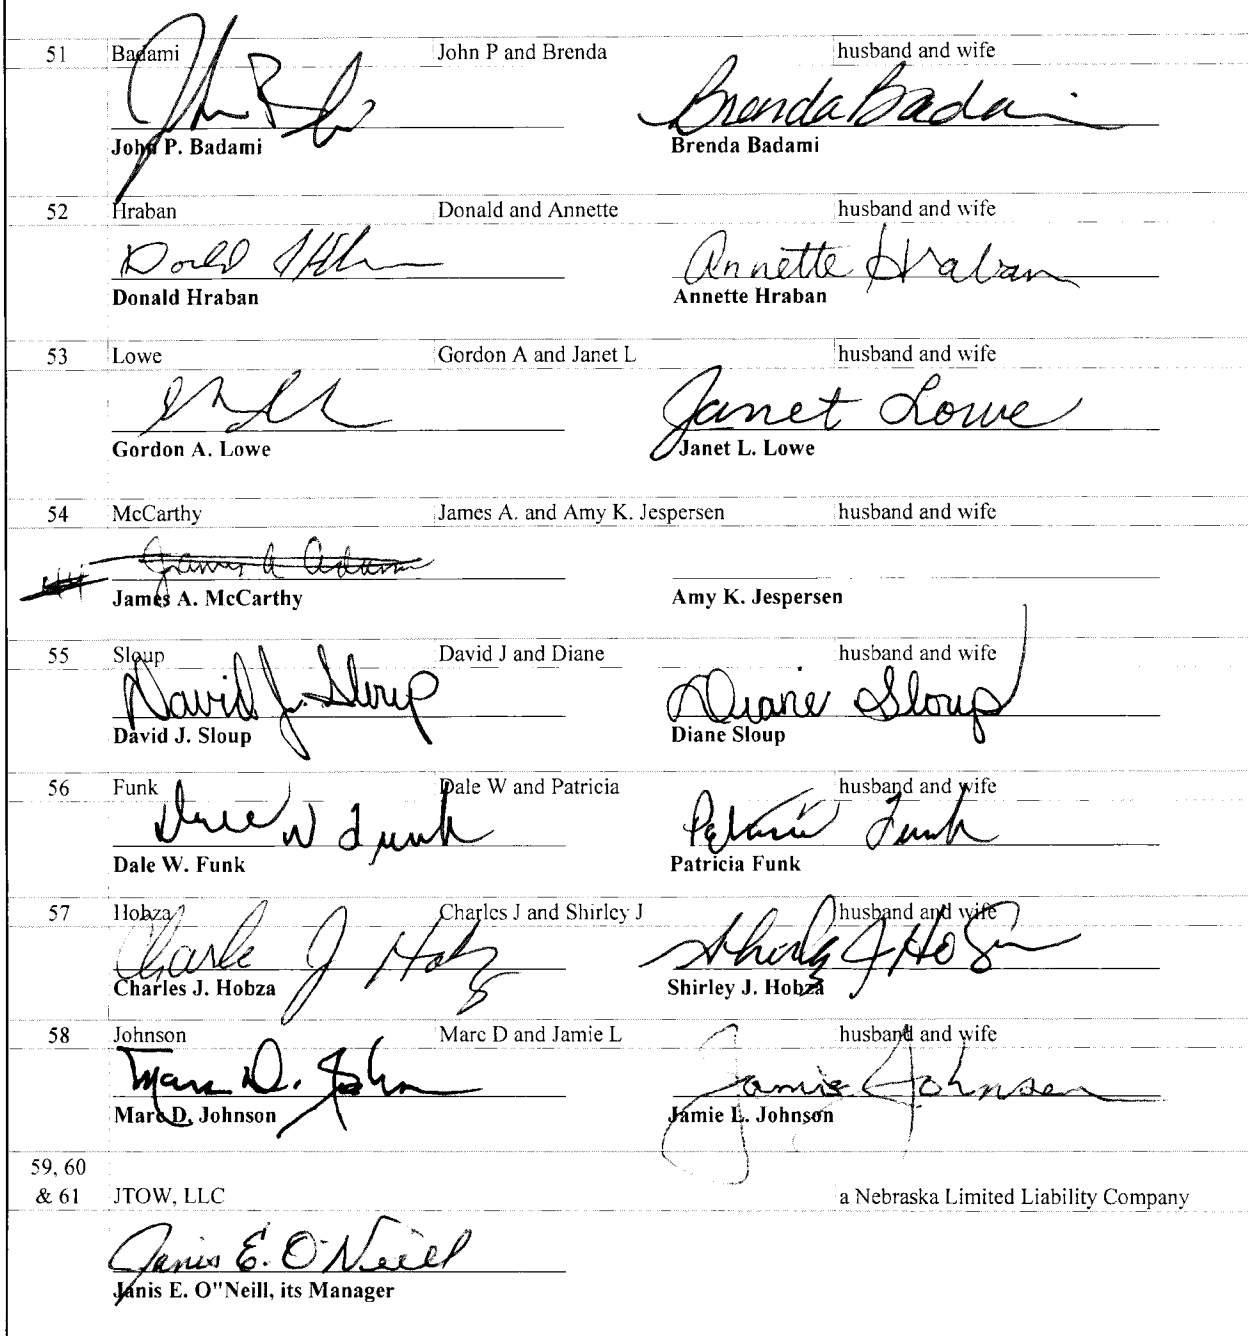 51 Badami John P and Brenda husband and wife
Brenda Badami
John P. Badami Brenda Badami
52 Hraban Donald and Annette husband and wife
Donald Annette Hraban
Donald Hraban Annette Hraban
53 Lowe Gordon A and Janet L husband and wife
Janet Lowe
Gordon A. Lowe Janet L. Lowe
54 McCarthy James A. and Amy K. Jespersen husband and wife
James A Adams
James A. McCarthy Amy K. Jespersen
55 Sloup David J and Diane husband and wife
David J. Sloup Diane Sloup
David J. Sloup Diane Sloup
56 Funk Dale W and Patricia husband and wife
Dale W Funk Patricia Funk
Dale W. Funk Patricia Funk
57 Hobza Charles J and Shirley J husband and wife
Charles J Hobza Shirley J Hobza
Charles J. Hobza Shirley J. Hobza
58 Johnson Marc D and Jamie L husband and wife
Marc D. John Jamie Johnson
Marc D. Johnson Jamie L. Johnson
59, 60
& 61 JTOW, LLC a Nebraska Limited Liability Company
Janis E. O'Neill
Janis E. O"Neill, its Manager